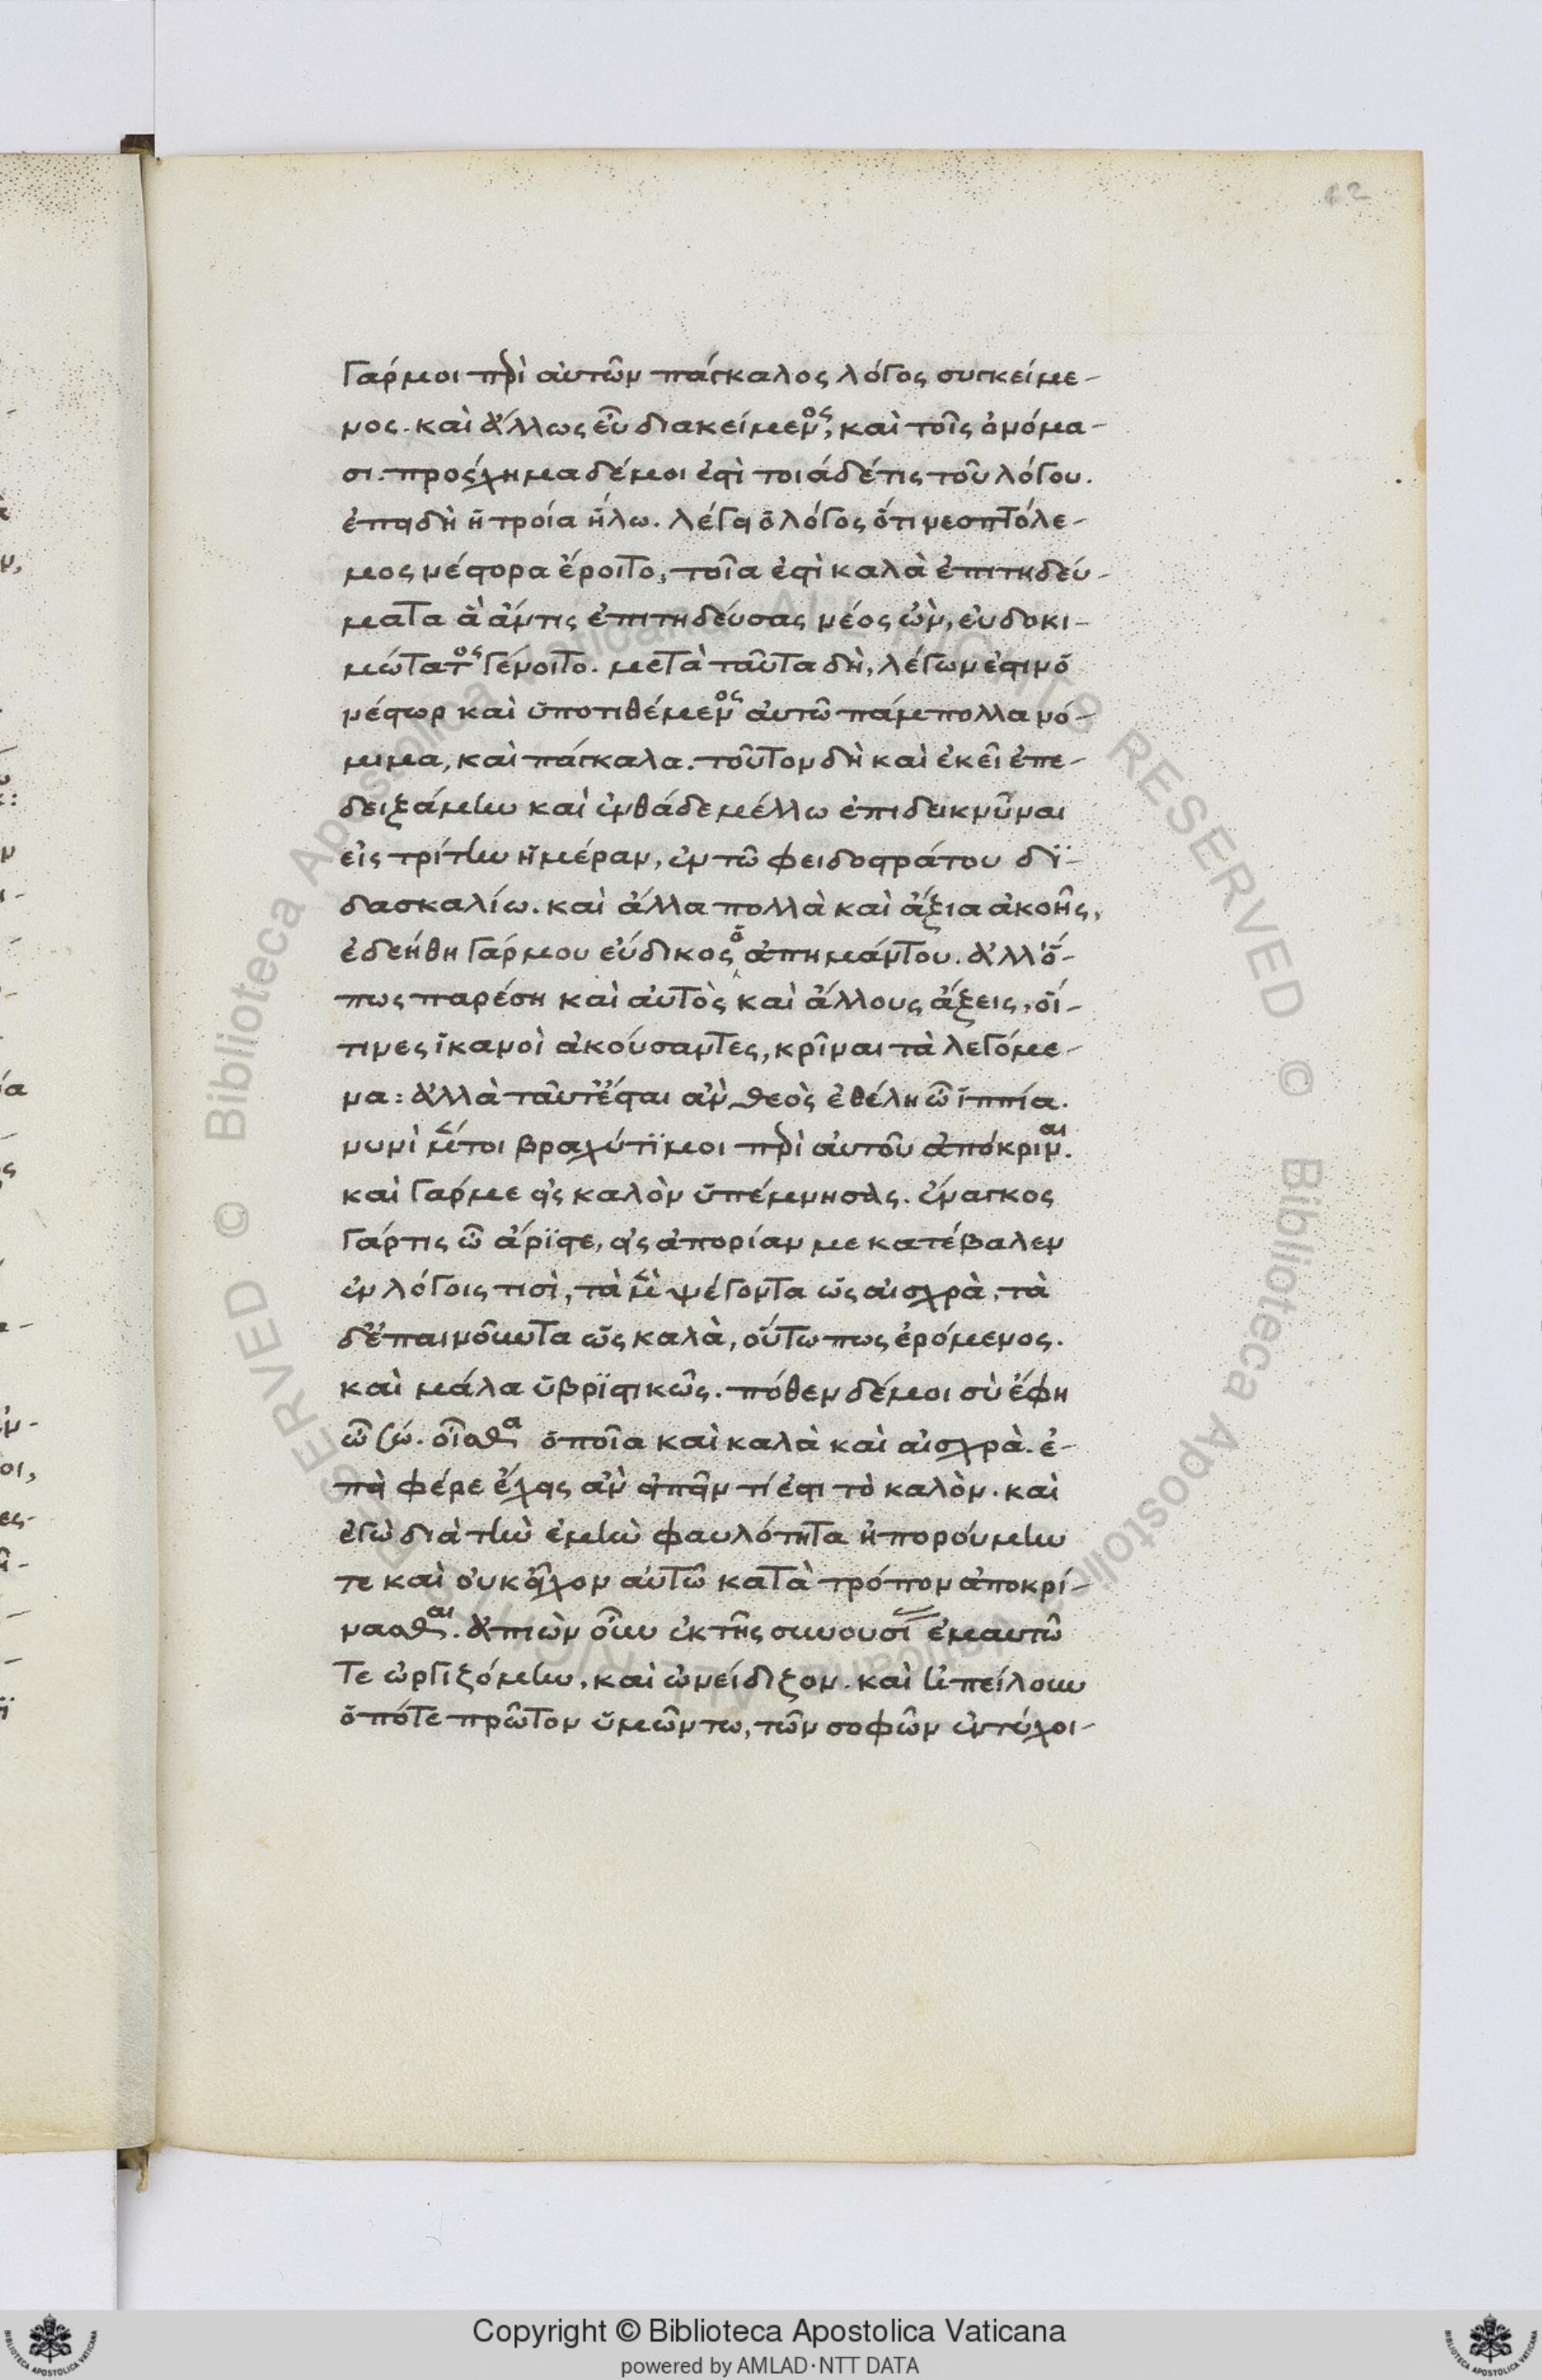 12
γάρ μοι περὶ αὐτῶν πάγκαλος λόγος συγκείμε-
νος. καὶ ἄλλως εὖ διακείμενος, καὶ τοῖς ὀνόμα-
σι. πρόσχημα δέ μοι ἐστὶ τοιάδέ τις τοῦ λόγου.
ἐπειδὴ ἡ τροία ἥλω. λέγει ὁ λόγος ὅτι νεοπτόλε-
μος νέστορα ἔροιτο, ποῖα ἐστὶ καλὰ ἐπιτηδεύ-
ματα ἃ ἄν τις ἐπιτηδεύσας νέος ὢν, εὐδοκι-
μώτατος γένοιτο. μετὰ ταῦτα δὴ, λέγων ἐστιν ὁ
νέστωρ καὶ ὑποτιθέμενος αὐτῶ πάμπολλα νό-
μιμα, καὶ πάγκαλα. τοῦτον δὴ καὶ ἐκεῖ ἐπε-
δειξάμην καὶ ἐνθάδε μέλλω ἐπιδεικνῦναι
εἰς τρίτην ἡμέραν, ἐν τῶ φειδοστράτου δϊ-
δασκαλίω. καὶ ἄλλα πολλὰ καὶ ἄξια ἀκοῆς,
ἐδεήθη γάρ μου εὔδικος ὁ ἀπημάντου. ἀλλ' ὅ-
πως παρέση καὶ αὐτὸς καὶ ἄλλους ἄξεις, οἵ-
τινες ἱκανοὶ ἀκούσαντες, κρῖναι τὰ λεγόμε-
να: ἀλλὰ ταῦτ' ἔσται ἂν θεὸς ἐθέλη ὦ ἱππία.
νυνὶ μέντοι βραχύ τϊ μοι περὶ αὐτοῦ ἀπόκριναι.
καὶ γάρ με εἰς καλὸν ὑπέμνησας. ἔναγκος
γάρ τις ὦ ἄρϊστε, εἰς ἀπορίαν με κατέβαλεν
ἐν λόγοις τισὶ, τὰ μὲν ψέγοντα ὡς αἰσχρὰ, τὰ
δ' ἐπαινοῦντα ὡς καλὰ, οὕτω πως ἐρόμενος.
καὶ μάλα ὑβρϊστικῶς. πόθεν δέ μοι σὺ ἔφη
ὦ σώ. οἶσθα ὁποῖα καὶ καλὰ καὶ αἰσχρὰ. ἐ-
πεὶ φέρε ἔχεις ἂν εἰπεῖν τί ἐστι τὸ καλὸν. καὶ
ἐγὼ διὰ τὴν ἐμὴν φαυλότητα ἠπορούμην
τε καὶ οὐκ εἶχον αὐτῶ κατὰ τρόπον ἀποκρί-
νασθαι. ἀπιὼν οὖν ἐκ τῆς συνουσίας ἐμαυτῶ
τε ὠργιζόμην, καὶ ὠνείδιζον. καὶ ἠπείλουν
ὁπότε πρῶτον ὑμῶν τω, τῶν σοφῶν ἐντύχοι-
Copyright © Biblioteca Apostolica Vaticana
powered by AMLAD·NTT DATA